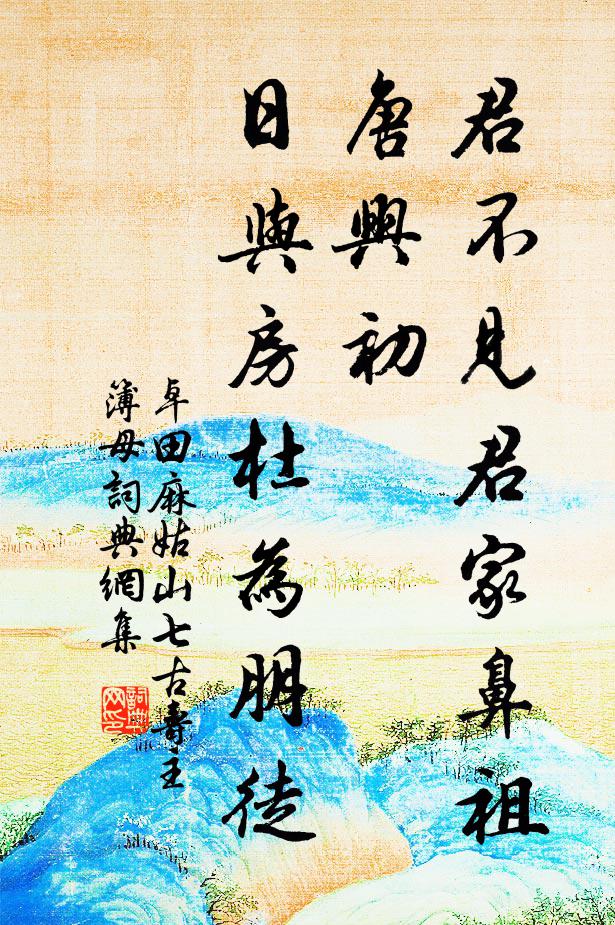 君不見君家鼻祖
唐興初
日與房杜為朋徒
卓田麻姑山七古壽主
簿母詞典網集